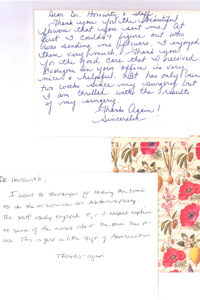 Dear Dr. Horowitz & staff
Thank you for the beautiful
flowers that you sent me. At
first I couldn't figure out who
was sending me flowers, I enjoyed
them very much. Thank you
for the good care that I received.
Everyone in your office is very
nice & helpful. It has only been
two weeks since my surgery but
I am thrilled with the results
of my surgery.
Thanks Again!
Sincerely
Dr. Horowitz,
I want to thank you for taking the time
to do the inservice on Abdominoplasty.
The staff really enjoyed it, it helped explain
to some of the nurses about the
This is just a little of Appreciation
Thanks again